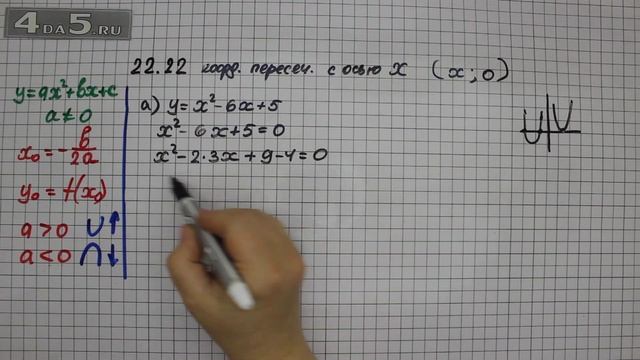 4DA5.RU
22.22 коорд. пересеч. с осью x (x; 0)
y=ax²+bx+c
a≠0
x₀=-b/2a
y₀=f(x₀)
a>0 ∪↑
a<0 ∩↓
а) y=x²-6x+5
x²-6x+5=0
x²-2·3x+9-4=0